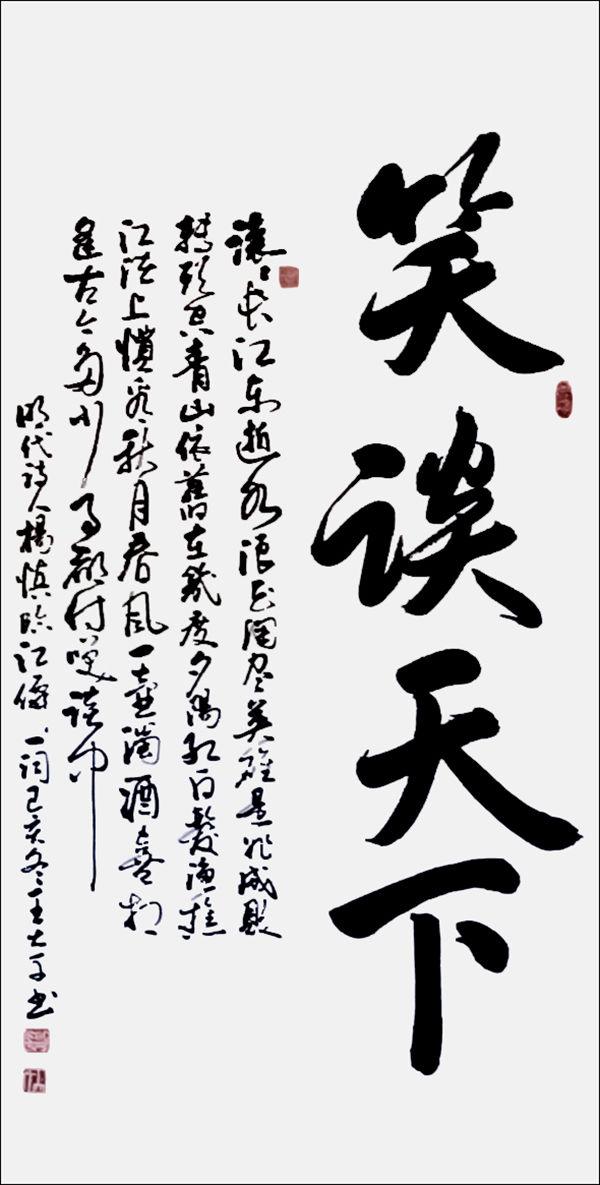 笑谈天下
滚滚长江东逝水浪花淘尽英雄是非成败
转头空青山依舊在幾度夕陽红白髮漁樵
江渚上惯看秋月春风一壶濁酒喜相
逢古今多少事都付笑谈中
明代诗人楊慎临江仙一词己亥冬王大书